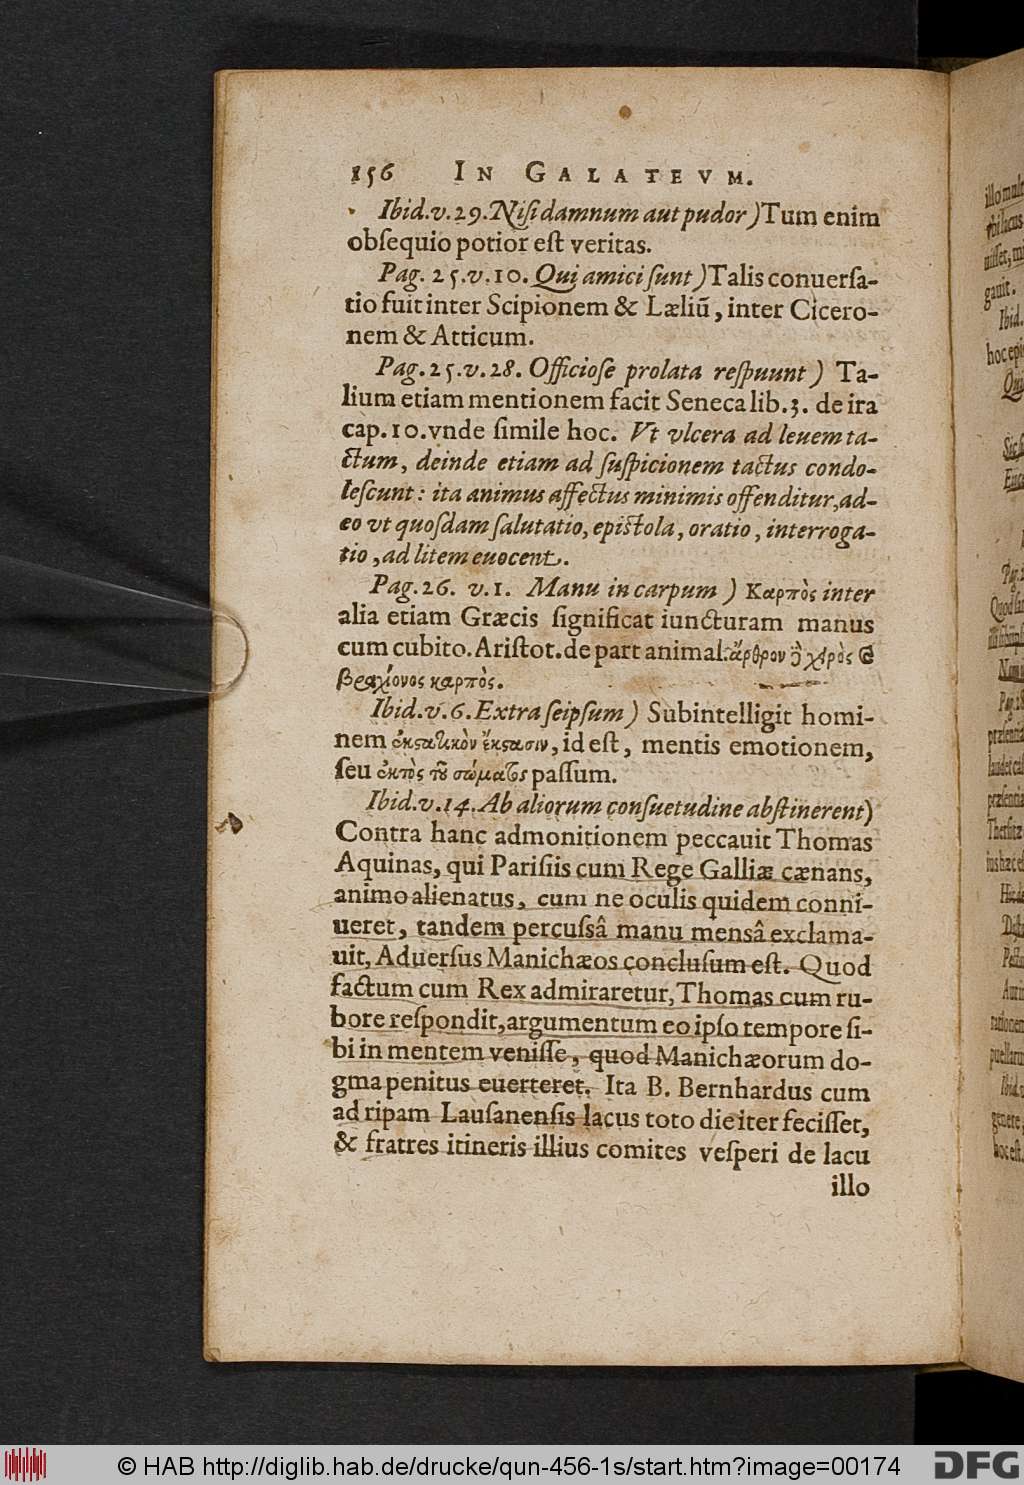 156 IN GALATEVM.
Ibid.v.29.Niſi damnum aut pudor)Tum enim
obſequio potior eſt veritas.
Pag. 25.v.10. Qui amici ſunt)Talis conuerſa-
tio fuit inter Scipionem & Læliũ, inter Cicero-
nem & Atticum.
Pag.25.v.28. Officioſe prolata reſpuunt) Ta-
lium etiam mentionem facit Seneca lib.3. de ira
cap.10.vnde ſimile hoc. Vt vlcera ad leuem ta-
ctum, deinde etiam ad ſuſpicionem tactus condo-
leſcunt: ita animus affectus minimis offenditur,ad-
eo vt quoſdam ſalutatio, epiſtola, oratio, interroga-
tio, ad litem euocent.
Pag.26. v.1. Manu in carpum) Καρπὸς inter
alia etiam Græcis ſignificat iuncturam manus
cum cubito. Ariſtot. de part animal. ἄρθρον ȣ̃ χειρὸς ϗ
βραχίονος καρπὸς.
Ibid.v.6.Extra ſeipſum) Subintelligit homi-
nem ἐκϛατικὸν ἔκϛασιν, id eſt, mentis emotionem,
ſeu ἐκτὸς τοῦ σώματος paſſum.
Ibid.v.14.Ab aliorum conſuetudine abſtinerent)
Contra hanc admonitionem peccauit Thomas
Aquinas, qui Pariſiis cum Rege Galliæ cænans,
animo alienatus, cum ne oculis quidem conni-
ueret, tandem percuſsâ manu mensâ exclama-
uit, Aduerſus Manichæos concluſum eſt. Quod
factum cum Rex admiraretur, Thomas cum ru-
bore reſpondit,argumentum eo ipſo tempore ſi-
bi in mentem veniſſe, quod Manichæorum do-
gma penitus euerteret. Ita B. Bernhardus cum
ad ripam Lauſanenſis lacus toto die iter feciſſet,
& fratres itineris illius comites veſperi de lacu
illo
© HAB http://diglib.hab.de/drucke/qun-456-1s/start.htm?image=00174
DFG